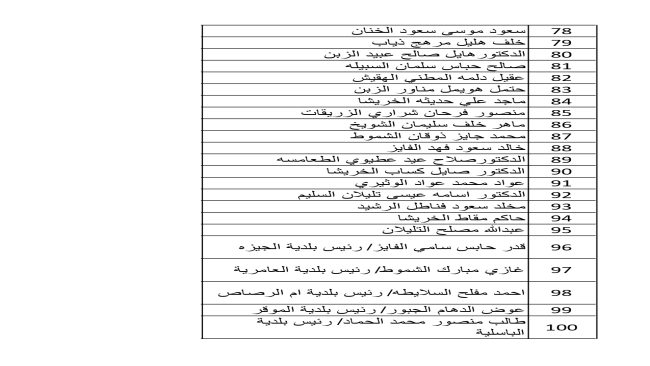 78 سعود موسى سعود الخنان
79 خلف هليل مرهج ذياب
80 الدكتور هايل صالح عبيد الزبن
81 صالح حباس سلمان السبيله
82 عقيل دلمه المطني الهقيش
83 حتمل هويمل مناور الزبن
84 ماجد علي حديثه الخريشا
85 منصور فرحان شراري الزريقات
86 ماهر خلف سليمان الشويخ
87 محمد جايز ذوقان الشموط
88 خالد سعود فهد الفايز
89 الدكتورصلاح عيد عطيوي الطعامسه
90 الدكتور صايل كساب الخريشا
91 عواد محمد عواد الوثيري
92 الدكتور اسامه عيسى تليلان السليم
93 مخلد سعود فناطل الرشيد
94 حاكم مقاط الخريشا
95 عبدالله مصلح التليلان
96 قدر حابس سامي الفايز/ رئيس بلدية الجيزه
97 غازي مبارك الشموط/ رئيس بلدية العامرية
98 احمد مفلح السلايطه/ رئيس بلدية ام الرصاص
99 عوض الدهام الجبور/ رئيس بلدية الموقر
100 طالب منصور محمد الحماد/ رئيس بلدية
الباسلية